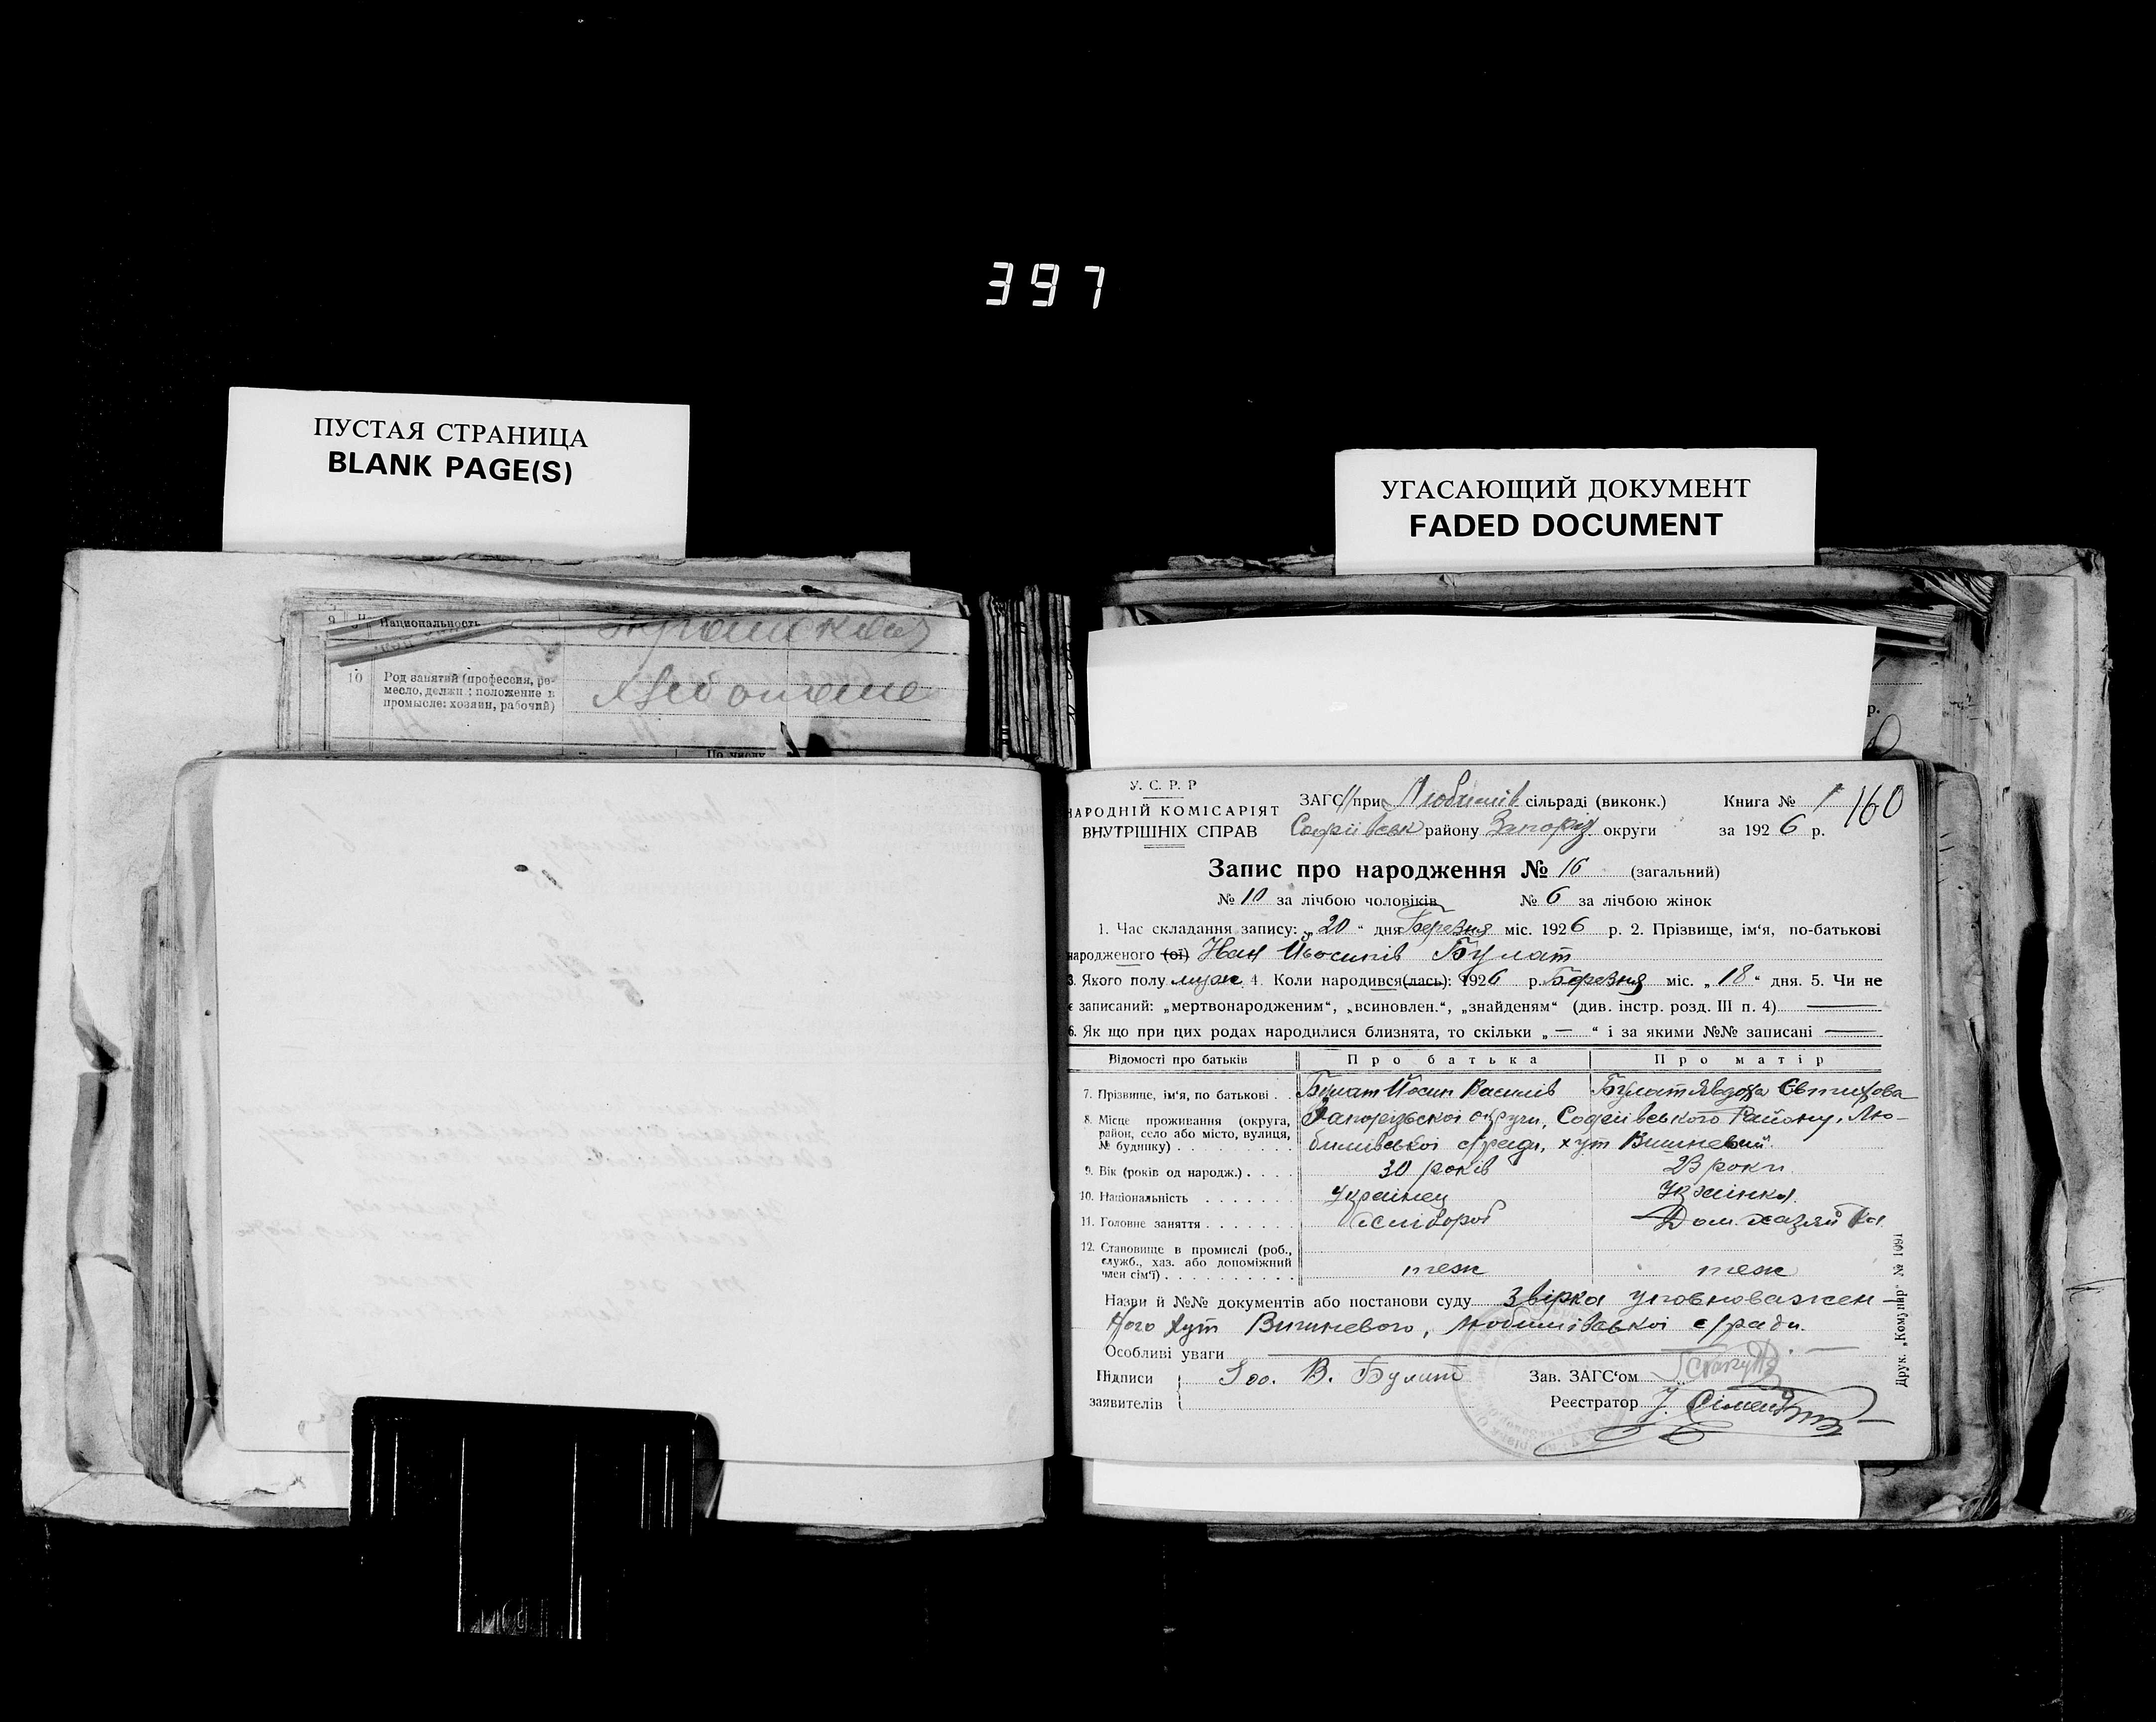 397
ПУСТАЯ СТРАНИЦА
BLANK PAGE(S)
УГАСАЮЩИЙ ДОКУМЕНТ
FADED DOCUMENT
Национальность
10 Род занятий (профессия, ре-
месло, должн: положение в
промысле: хозяин, рабочий)
По числу
У. С. Р. Р
НАРОДНІЙ КОМІСАРІЯТ
ВНУТРІШНІХ СПРАВ
ЗАГС при Любимів сільраді (виконк.)
Софіївськ району Запоріз. округи
Книга № 1 160
за 1926 р.
Запис про народження № 16 (загальний)
№ 10 за лічбою чоловіків № 6 за лічбою жінок
1. Час складання запису: „20“ дня Березня міс. 1926 р. 2. Прізвище, ім‘я, по-батькові
народженого (ої) Иван Йосипів Булат
3. Якого полу муж. 4. Коли народився(лась): 1926 р. Березня міс. „18“ дня. 5. Чи не
є записаний: „мертвонародженим“, „всиновлен.“, „знайденям“ (див. інстр. розд. III п. 4)
6. Як що при цих родах народилися близнята, то скільки „—“ і за якими №№ записані —
Відомості про батьків Про батька Про матір
7. Прізвище, ім‘я, по батькові . . Булат Йосип Василів Булат Явдоха
8. Місце проживання (округа, район, село або місто, вулиця, № будинку) Запорізської округи, Софіівського Району, Лю-
бимівської с/ради, хут Вишневий.
9. Вік (років од народж.) . . . . 30 років 23 роки
10. Національність . . . . . . . Українец Українка.
11. Головне заняття . . . . . . . Дом. хазяйка
12. Становище в промислі (роб.,
служб., хаз. або допоміжний
член сім‘ї) . . . . . . . . . . теж теж
Назви й №№ документів або постанови суду Звірка уповноважен-
ного хут Вишневого, Любимівської с/ради.
Особливі уваги
Підписи
заявителів В. Булат
Зав. ЗАГС‘ом
Реєстратор
Друк. „Комунар“ № 1601